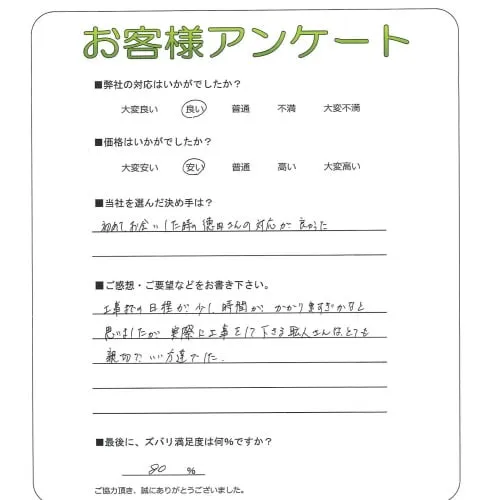 お客様アンケート
■弊社の対応はいかがでしたか？
大変良い 良い 普通 不満 大変不満
■価格はいかがでしたか？
大変安い 安い 普通 高い 大変高い
■当社を選んだ決め手は？
初めてお会いした時の徳田さんの対応が良かった
■ご感想・ご要望などをお書き下さい。
工事までの日程が少し時間がかかりますぎかなと
思いましたが実際に工事をして下さる職人さんはとても
親切でいい方達でした.
■最後に、ズバリ満足度は何％ですか？
80 ％
ご協力頂き、誠にありがとうございました。